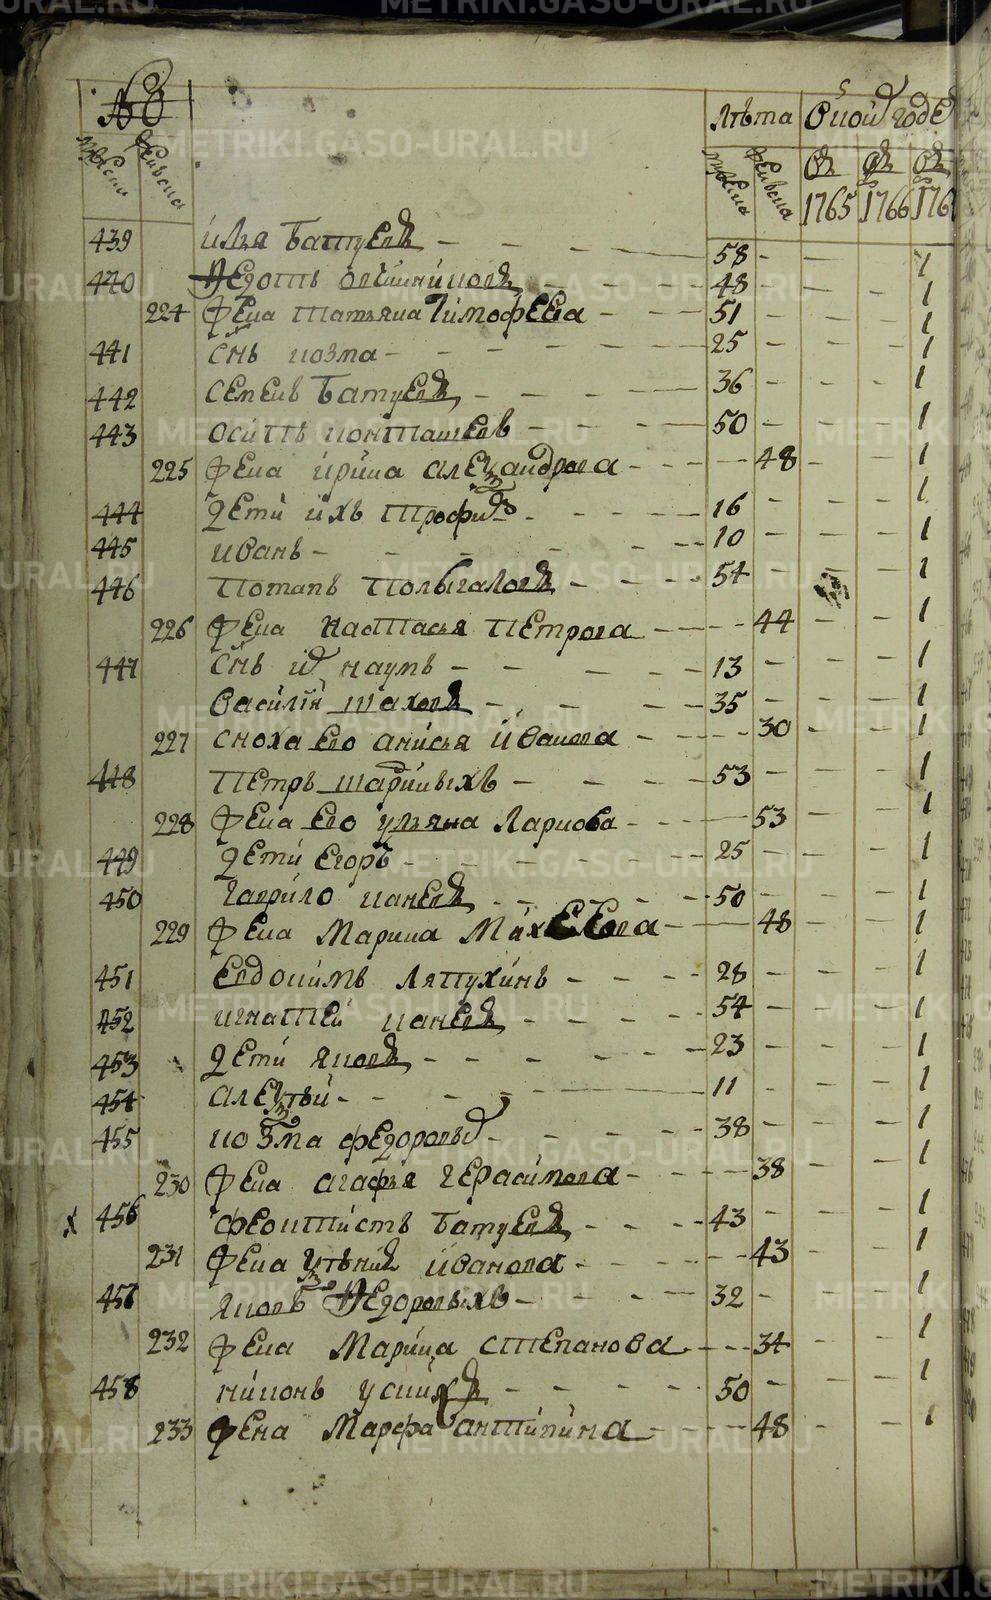 №
Лѣта Которой годъ
мужеска женска мужеска женска въ 1765 въ 1766 въ 176
439 илья Батуевъ 58 1
440 Федотъ 48 1
224 жена татьяна Тимофѣева 51 1
441 снъ козма 25 1
442 семенъ Батуевъ 36 1
443 осипъ конташевъ 50 1
225 жена ирина александрова 48 1
444 дети ихъ трофимъ 16 1
445 иванъ 10 1
446 потапъ полыгаловъ 54 1
226 жена настасья петрова 44 1
447 снъ их наумъ 13 1
василий шаховъ 35 1
227 сноха ево анисья иванова 30 1
448 петръ шардиныхъ 53 1
228 жена ево ульяна Ларионова 53 1
449 дети егоръ 25 1
450 гаврило каневъ 50 1
229 жена Марина Михеева 48 1
451 евдокимъ Ляпухинъ 28 1
452 игнатей каневъ 54 1
453 дети яковъ 23 1
454 алексѣй 11 1
455 козма федоровых 38 1
230 жена агафья герасимова 38 1
456 феоктистъ Батуевъ 43 1
231 жена ксѣния иванова 43 1
457 яковъ Федоровыхъ 32 1
232 жена Марица степанова 34 1
458 никонъ 50 1
233 жена Марфа антипина 48 1
METRIKI.GASO-URAL.RU